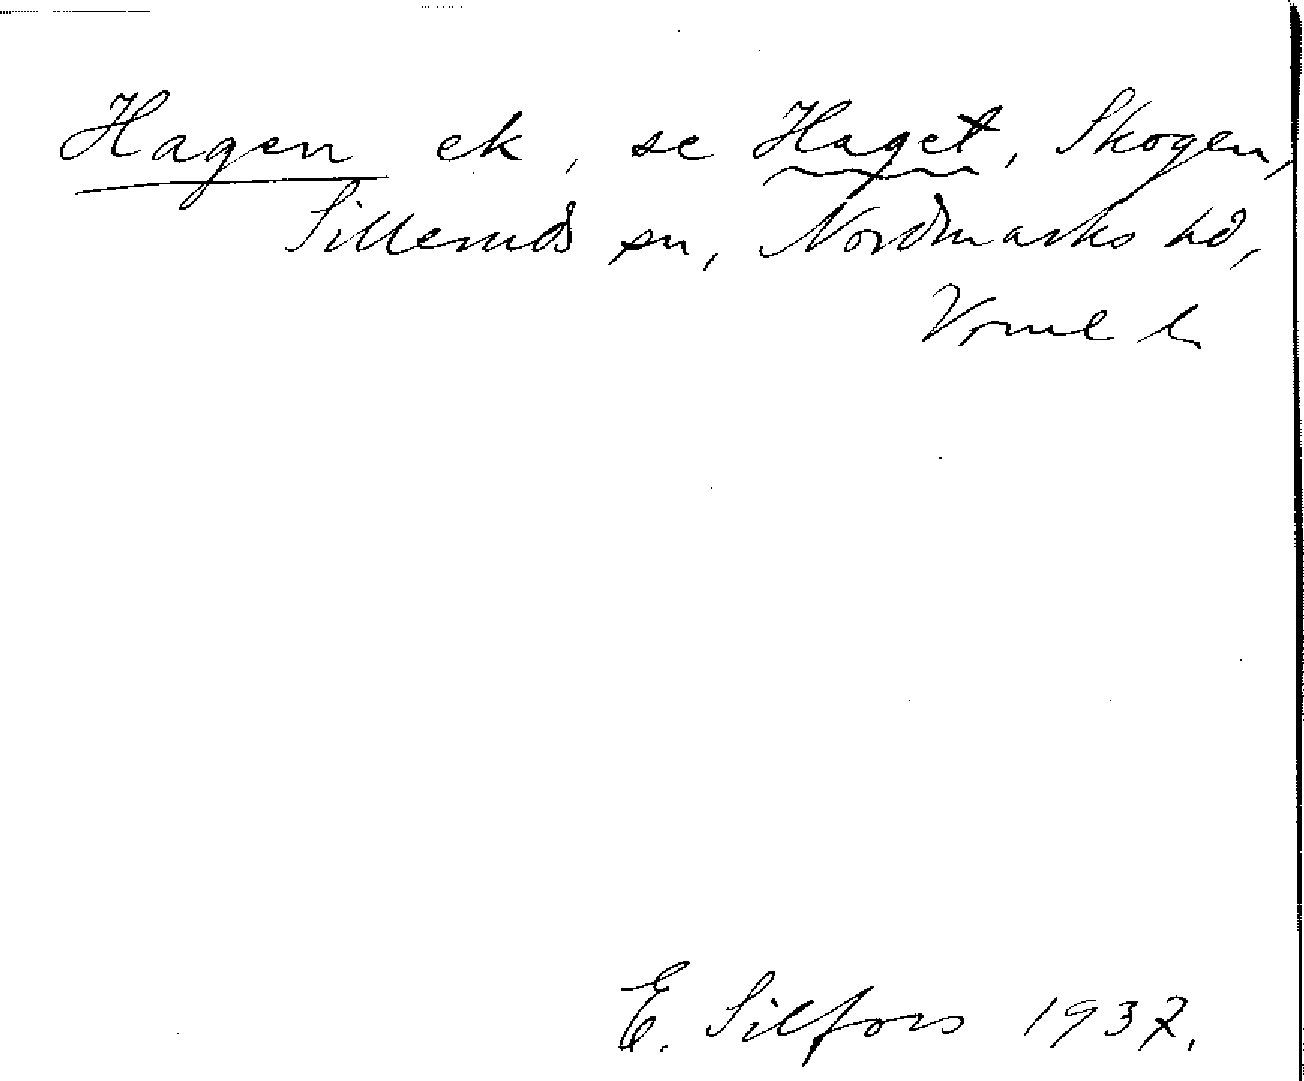 Hagen ek, se Haget, Skogen,
Silleruds sn, Nordmarks hd,
Vrml l.
E. Silfors 1937.